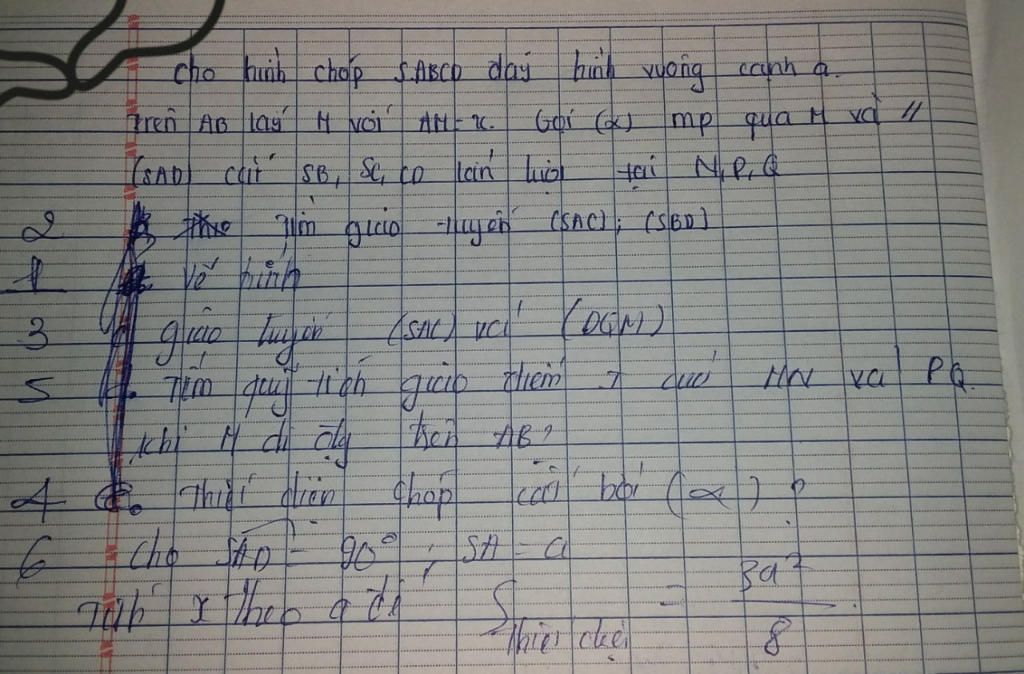 Cho hình chóp S.ABCD đáy hình vuông cạnh a.
Trên AB lấy M với AM = x. Gọi (α) mp qua M và //
(SAD) cắt SB, SC, CD lần lượt tại N, P, Q
2 Tìm giao tuyến (SAC); (SBD)
1 Vẽ hình
3 giao tuyến (SAC) và (DGM)
5 Tìm quỹ tích giao điểm I của MN và PQ
khi M di động trên AB?
4 Thiết diện chóp cắt bởi (α)?
6 Cho SAD = 90°, SA = a
Tính x theo a để S thiết diện = 3a²/8